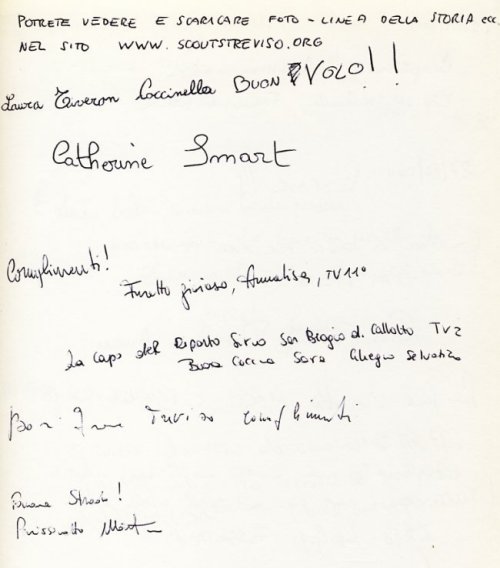 POTRETE VEDERE E SCARICARE FOTO - LINEA DELLA STORIA ecc.
NEL SITO WWW.SCOUTSTREVISO.ORG
Laura Taveron Coccinella BUON VOLO!!
Catherine Smart
Complimenti!
Furetto, Annalisa, TV 11°
La Capo del Reparto San Biagio di Callalta TV2
Sara
Treviso complimenti
Buona Strada!